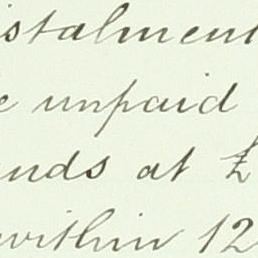 istalment
e unpaid
unds at £
within 12